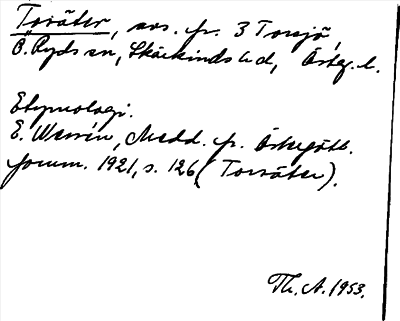 Torsäter, sos. fr. 3 Torsjö,
Ö. Ryds sn, Skärkinds hd, Östg. l.
Etymologi.
E. Wessén, Medd. fr. Östergötl.
fornm. 1921, s. 126 (Torsäter).
Th. A. 1953.